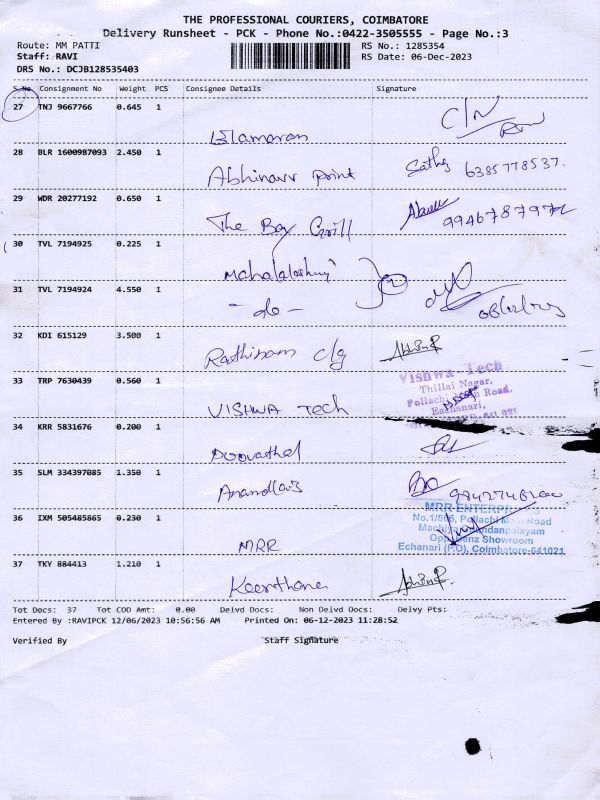 THE PROFESSIONAL COURIERS, COIMBATORE
Delivery Runsheet - PCK - Phone No.:0422-3505555 - Page No.:3
Route: MM PATTI RS No.: 1285354
Staff: RAVI RS Date: 06-Dec-2023
DRS No.: DCJB128535403
S.No Consignment No Weight PCS Consignee Details Signature
27 TNJ 9667766 0.645 1
28 BLR 1600987093 2.450 1 Abhinav print 6385778537.
29 WDR 20277192 0.650 1 The Boy Grill
30 TVL 7194925 0.225 1 Mahalakshmi
31 TVL 7194924 4.550 1 - do -
32 KDI 615129 3.500 1 Rathinam clg
33 TRP 7630439 0.560 1 VISHWA Tech Vishwa Tech
Thillai Nagar,
Pollachi Road,
Eachanari,
34 KRR 5831676 0.200 1 Poovathal
35 SLM 334397085 1.350 1
36 IXM 505485865 0.230 1 MRR MRR ENTERPRISES
No.1/866, Pollachi Main Road
Opp. Benz Showroom
Echanari (P.O), Coimbatore-641021
37 TKY 884413 1.210 1 Keerthana
Tot Docs: 37 Tot COD Amt: 0.00 Delvd Docs: Non Delvd Docs: Delvy Pts:
Entered By :RAVIPCK 12/06/2023 10:56:56 AM Printed On: 06-12-2023 11:28:52
Verified By Staff Signature